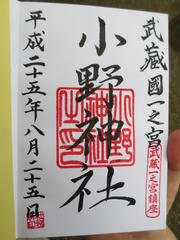 武蔵國一之宮
武蔵一之宮鎮座
小野神社
小野神社之印
平成二十五年八月二十五日